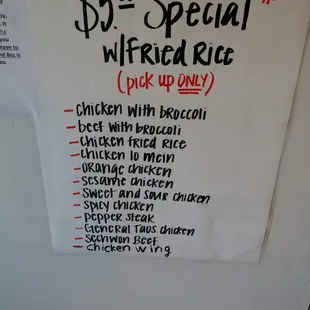 $5.⁰⁰ Special
w/Fried Rice
(pick up ONLY)
- chicken with broccoli
- beef with broccoli
- chicken fried rice
- chicken lo mein
- orange chicken
- sesame chicken
- sweet and sour chicken
- spicy chicken
- pepper steak
- General Taos chicken
- Sechwon Beef
- chicken wing
you
have to